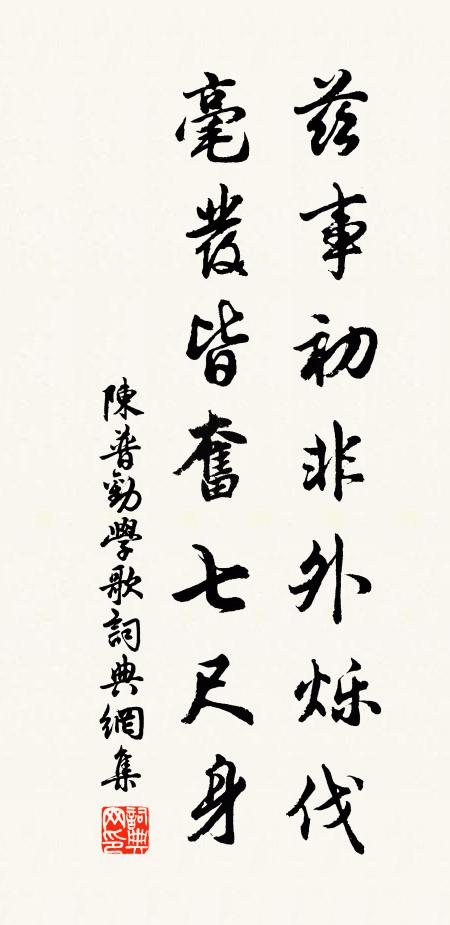 茲事初非外烁伐
毫發皆奮七尺身
陳普勸學歌詞典網集
詞典网印